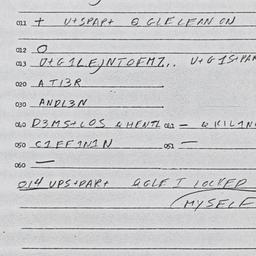 011 + U+SPAP+ & GLELEAN ON
012 O
013 U+G1LEJNTOFMZ.. U+G1S+PAR
020 A TI3R
030 ANDL3N
040 D3MS+LOS & HENTL 041 — & KILIN
050 C1FF1N1N 051 —
060 —
014 UPS+PAR+ &GLE I LOCKED
MYSELF